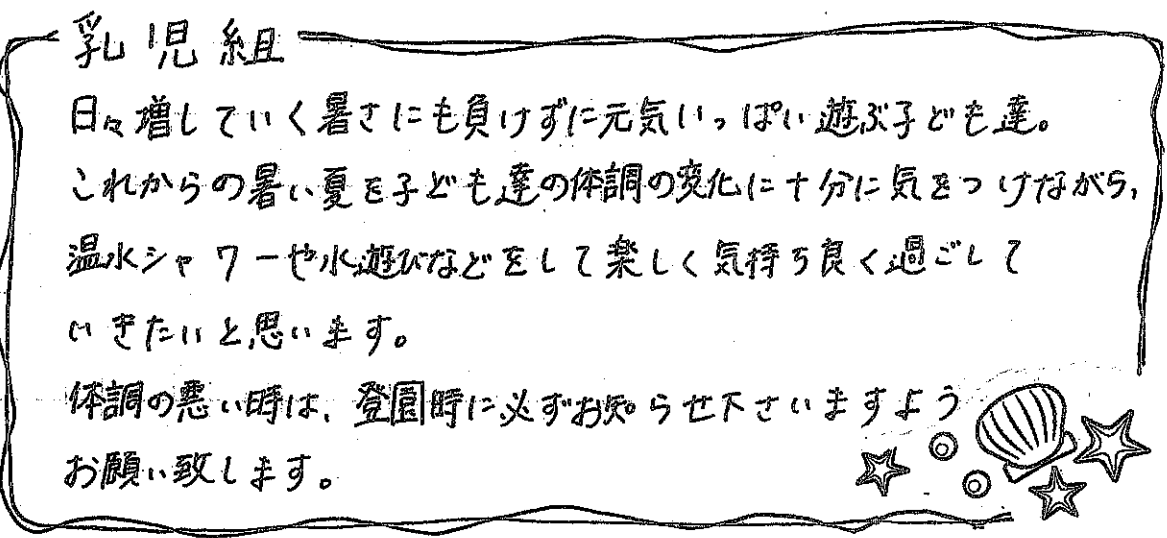 乳児組
日々増していく暑さにも負けずに元気いっぱい遊ぶ子ども達。
これからの暑い夏を子ども達の体調の変化に十分に気をつけながら、
温水シャワーや水遊びなどをして楽しく気持ち良く過ごして
いきたいと思います。
体調の悪い時は、登園時に必ずお知らせ下さいますよう
お願い致します。